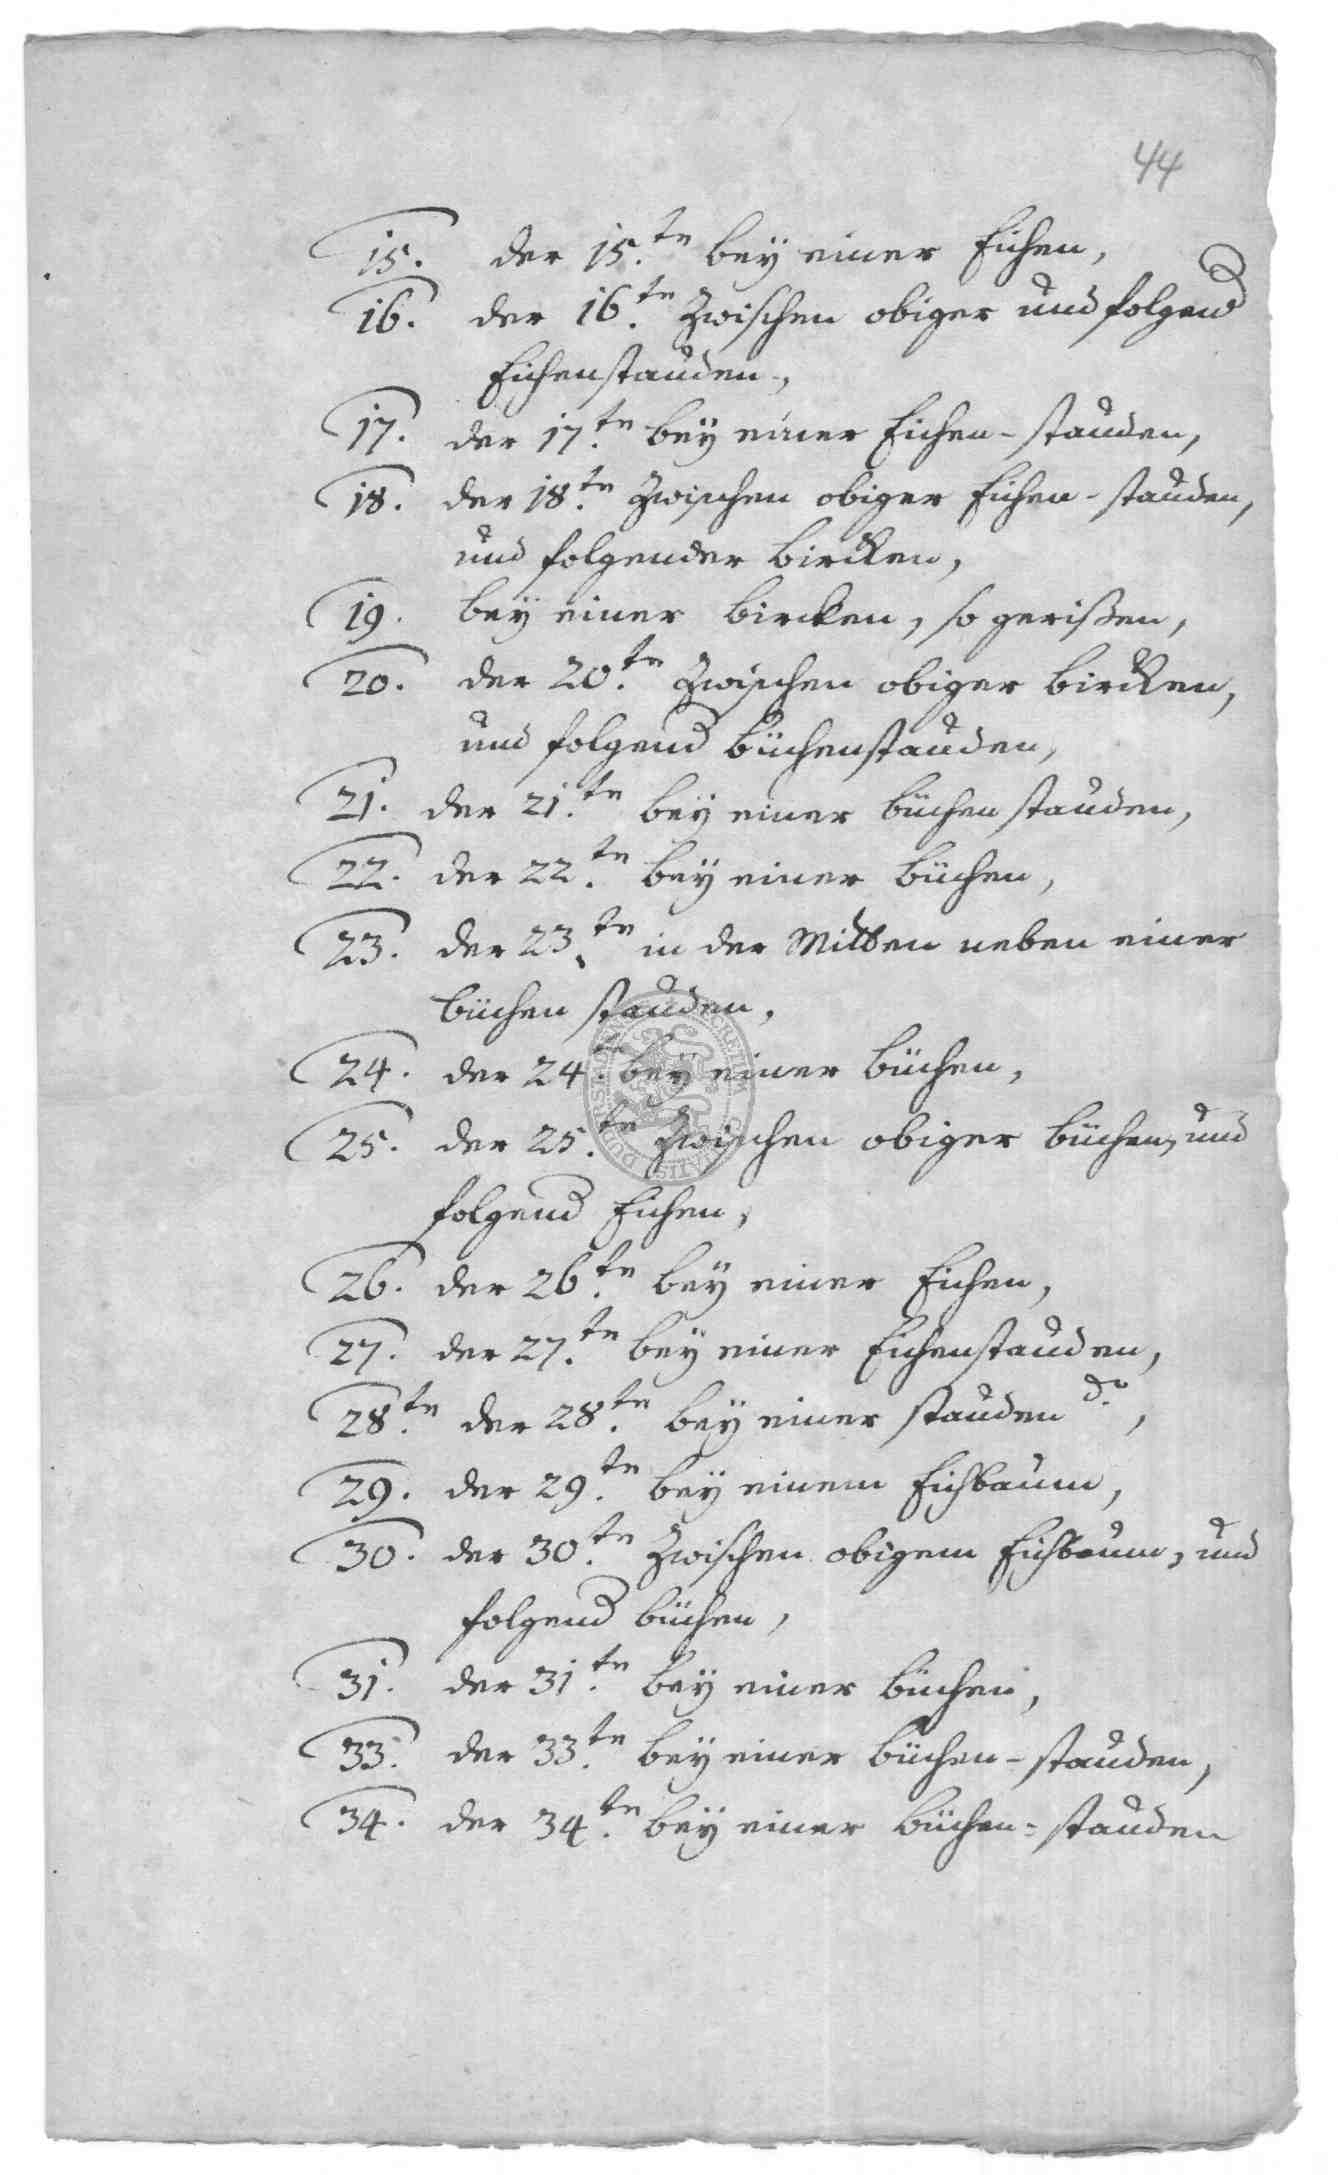 44
15. der 15.te bey einer Eichen,
16. der 16.te Zwischen obiger und folgend
Eichenstauden,
17. der 17.te bey einer Eichen-stauden,
18. der 18.te Zwischen obiger Eichen-stauden,
und folgender bircken,
19. bey einer bircken, so gerißen,
20. der 20.te Zwischen obiger bircken,
und folgend büchenstauden,
21. der 21.te bey einer büchen stauden,
22. der 22.te bey einer büchen,
23. der 23.te in der Mitten neben einer
büchen stauden,
24. der 24.te bey einer büchen,
25. der 25.te Zwischen obiger büchen, und
folgend Eichen,
26. der 26.te bey einer Eichen,
27. der 27.te bey einer Eichenstauden,
28.te der 28.te bey einer stauden do.,
29. der 29.te bey einem Eichbaum,
30. der 30.te Zwischen obigem Eichbaum, und
folgend büchen,
31. der 31.te bey einer büchen,
33. der 33.te bey einer büchen-stauden,
34. der 34.te bey einer büchen-stauden